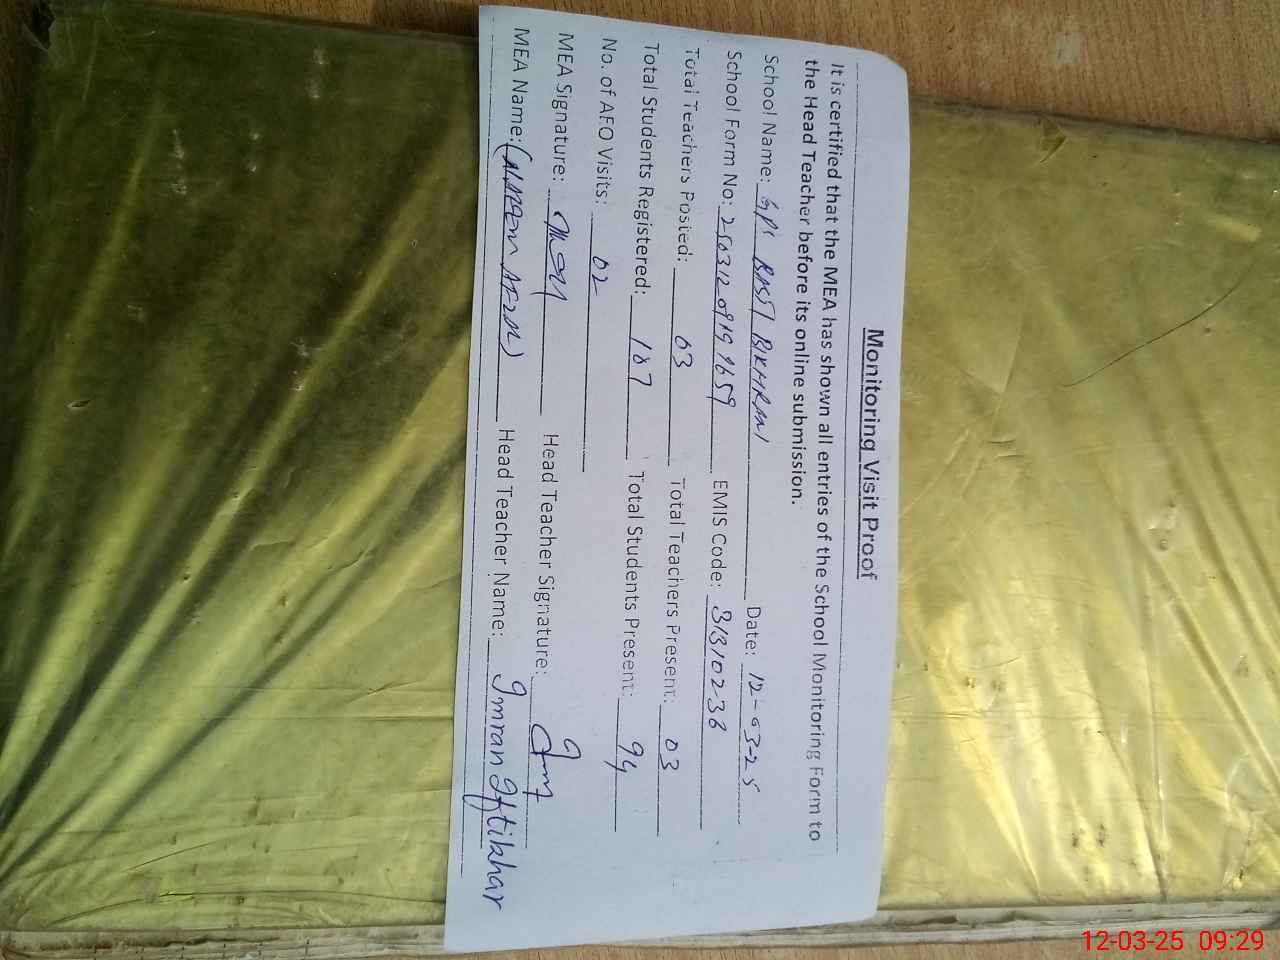 Monitoring Visit Proof
It is certified that the MEA has shown all entries of the School Monitoring Form to
the Head Teacher before its online submission.
School Name: GPS BASTI BIKHRANI Date: 12-03-25
School Form No: EMIS Code: 31310236
Total Teachers Posted: 03 Total Teachers Present: 03
Total Students Registered: 107 Total Students Present: 94
No. of AEO Visits: 02
MEA Signature: Head Teacher Signature:
MEA Name: Head Teacher Name: Imran Iftikhar
12-03-25 09:29